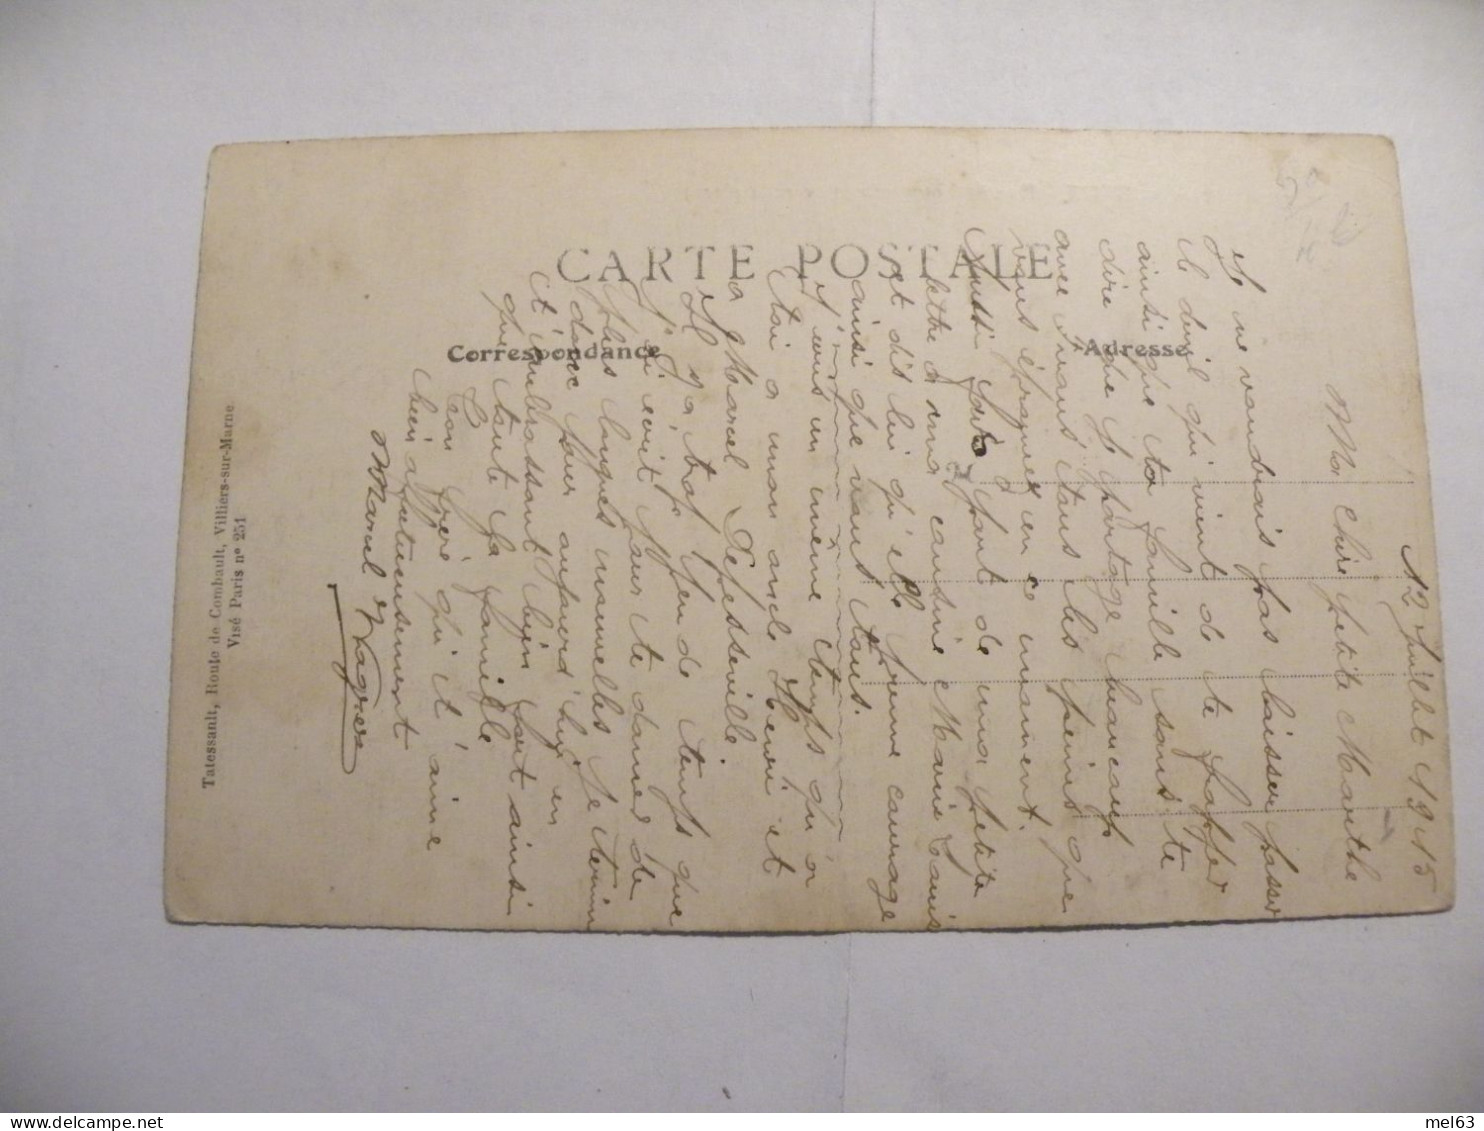 CARTE POSTALE
Correspondance
Adresse
Tatessault, Route de Combault, Villiers-sur-Marne
Visé Paris nº 251
12 Juillet 1915
Ma chère petite Marthe
Je ne voudrais pas laisser passer
le deuil qui vient de te frapper
ainsi que ta famille sans te
dire que je partage beaucoup
avec vous tous les peines que
vous éprouvez en ce moment.
Aussi fais part de ma petite
lettre à ma cousine Marie Louis
et dis lui qu'elle prenne courage
ainsi que vous tous.
J'écris en même temps qu'a
toi a mon oncle Henri et
a Marcel Lefesseville
Il y a trop peu de temps que
j'ai écrit pour te donner de
plus longues nouvelles je termine
donc pour aujourd'hui en
t'embrassant bien fort ainsi
que toute la famille
Ton frère qui t'aime
bien affectueusement
Marcel